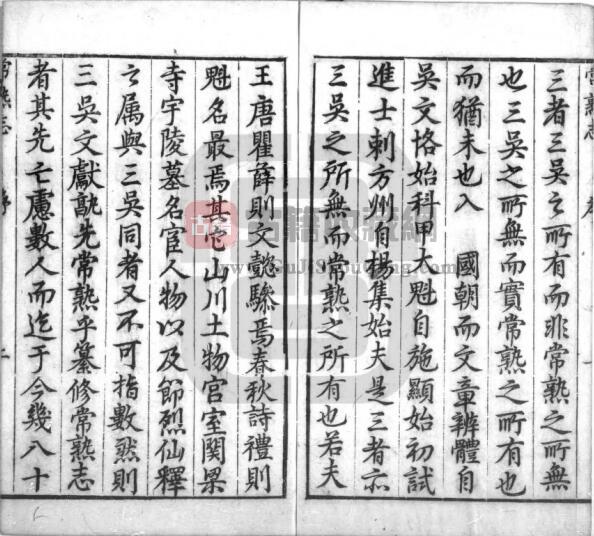 常熟志
三者三吳之所有而非常熟之所無
也三吳之所無而實常熟之所有也
而猶未也入 國朝而文章辨體自
吳文恪始科甲大魁自施顯始初試
進士刺方州自楊集始夫是三者亦
三吳之所無而常熟之所有也若夫
王唐瞿薛則文懿驂焉春秋詩禮則
魁名最焉其它山川土物宮室関梁
寺宇陵墓名宦人物以及節烈仙釋
之属與三吳同者又不可指數然則
三吳文獻孰先常熟乎纂修常熟志
者其先亡慮數人而迄于今幾八十
常熟志 序 二